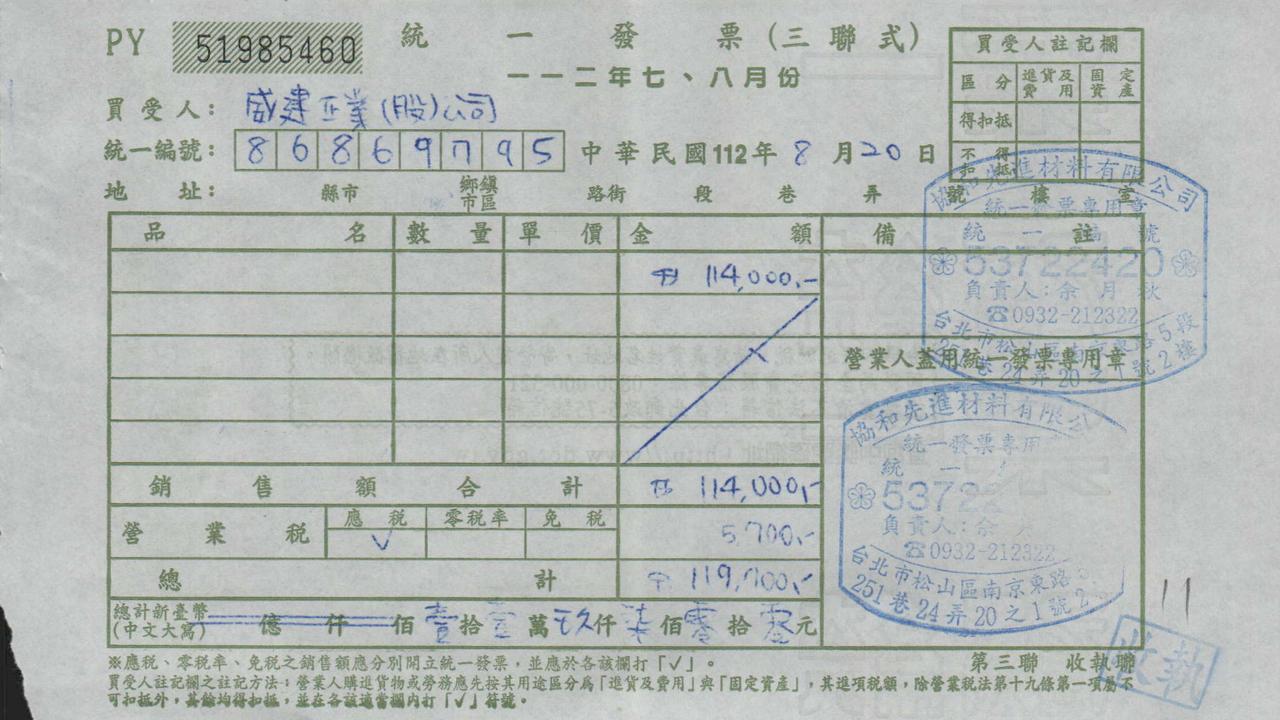 PY 51985460 統一發票(三聯式)
一一二年七、八月份
買受人註記欄
區分 進貨及費用 固定資產
得扣抵
不得扣抵
買受人: 威建企業(股)公司
統一編號: 86869795 中華民國112年8月20日
地址: 縣市 鄉鎮市區 路街 段 巷 弄 號 樓 室
品名 數量 單價 金額 備註
114,000.-
營業人蓋用統一發票專用章
銷售額合計 114,000.-
營業稅 應稅 零稅率 免稅
✓ 5,700.-
總計 119,700.-
總計新臺幣
(中文大寫) 億 仟 佰 壹 拾 壹 萬 玖 仟 柒 佰 零 拾 零 元
協和先進材料有限公司
統一發票專用章
統一編號
53722420
負責人:余月秋
☎0932-212322
台北市松山區南京東路5段
251巷24弄20之1號2樓
協和先進材料有限公
統一發票專用
統一
5372
負責人:余
☎0932-212322
台北市松山區南京東路
251巷24弄20之1號2
11
※應稅、零稅率、免稅之銷售額應分別開立統一發票,並應於各該欄打「✓」。
第三聯 收執聯
收執
買受人註記欄之註記方法:營業人購進貨物或勞務應先按其用途區分為「進貨及費用」與「固定資產」,其進項稅額,除營業稅法第十九條第一項屬不
可扣抵外,其餘均得扣抵,並在各該適當欄內打「✓」符號。